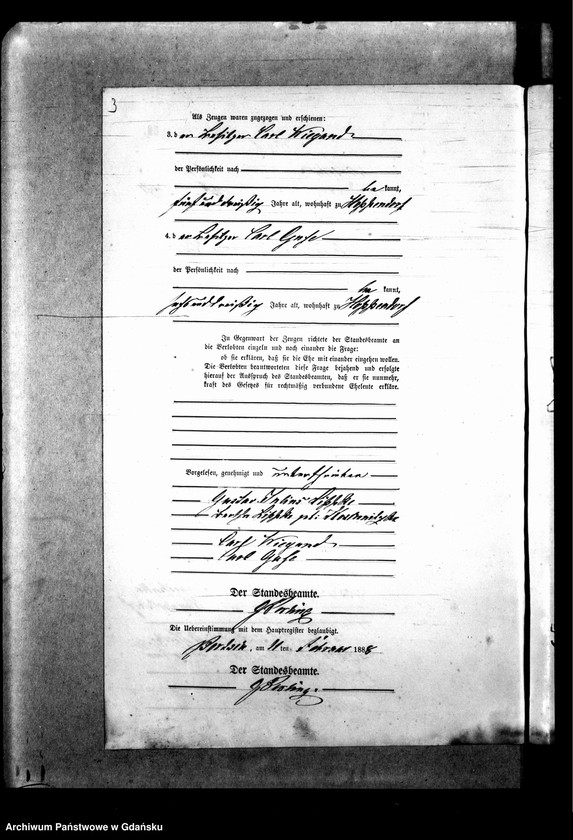 3
Als Zeugen waren zugezogen und erschienen:
3. d er Besitzer Carl Wiegand
der Persönlichkeit nach
be kannt,
fünfunddreißig Jahre alt, wohnhaft zu Hoppendorf
4. d er Besitzer Carl
der Persönlichkeit nach
be kannt,
sechsunddreißig Jahre alt, wohnhaft zu Hoppendorf
In Gegenwart der Zeugen richtete der Standesbeamte an
die Verlobten einzeln und nach einander die Frage:
ob sie erklären, daß sie die Ehe mit einander eingehen wollen.
Die Verlobten beantworteten diese Frage bejahend und erfolgte
hierauf der Ausspruch des Standesbeamten, daß er sie nunmehr,
kraft des Gesetzes für rechtmäßig verbundene Eheleute erkläre.
Vorgelesen, genehmigt und unterschrieben
Gustav Julius
geb:
Carl Wiegand
Carl
Der Standesbeamte.
Die Uebereinstimmung mit dem Hauptregister beglaubigt.
am 11 ten Februar 1888
Der Standesbeamte.
Archiwum Państwowe w Gdańsku